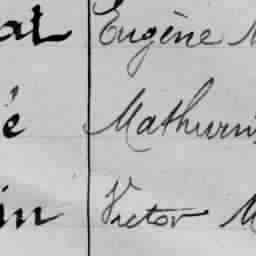 at Eugène M
é Mathurin
in Victor M